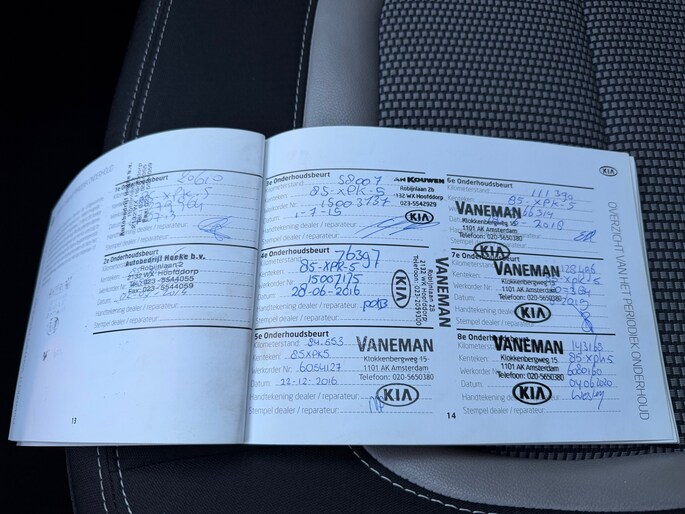 1e Onderhoudsbeurt
20610
85-XPK-5
Stempel dealer / reparateur
2e Onderhoudsbeurt
Autobedrijf Heeke b.v.
Robijnlaan 2
2132 WX Hoofddorp
Tel. 023-5544055
Fax 023-5544059
Handtekening dealer / reparateur
Stempel dealer / reparateur
13
3e Onderhoudsbeurt
58007
Kilometerstand
85-XPK-5
Kenteken
15003737
Werkorder Nr.
1-7-15
Datum
Handtekening dealer / reparateur
Stempel dealer / reparateur
AH KOUWEN
Robijnlaan 2b
2132 WX Hoofddorp
023-5542929
KIA
4e Onderhoudsbeurt
76397
Kilometerstand
85-XPK-5
Kenteken
15007175
Werkorder Nr.
28-06-2016
Datum
Handtekening dealer / reparateur
Stempel dealer / reparateur
VANEMAN
Robijnlaan 2b
2132 WX Hoofddorp
KIA
5e Onderhoudsbeurt
Kilometerstand 84.553
Kenteken: 85XPK5
Werkorder Nr: 6054127
Datum 22-12-2016
Handtekening dealer / reparateur
Stempel dealer / reparateur
VANEMAN
Klokkenbergweg 15
1101 AK Amsterdam
Telefoon: 020-5650380
KIA
14
6e Onderhoudsbeurt
Kilometerstand 111390
Kenteken 85-XPK-5
2018
Handtekening dealer / reparateur
Stempel dealer / reparateur
VANEMAN
Klokkenbergweg 15
1101 AK Amsterdam
Telefoon: 020-5650380
KIA
7e Onderhoudsbeurt
Kilometerstand
Kenteken
Werkorder
Datum
2019
Handtekening
Stempel dealer / reparateur
VANEMAN
Klokkenbergweg 15
1101 AK Amsterdam
Telefoon: 020-5650380
KIA
8e Onderhoudsbeurt
Kilometerstand 143168
Kenteken: 85-XPK-5
Werkorder Nr. 6080160
Datum 04.06.2020
Handtekening dealer / reparateur Wesley
Stempel dealer / reparateur
VANEMAN
Klokkenbergweg 15
1101 AK Amsterdam
Telefoon: 020-5650380
KIA
KIA
OVERZICHT VAN HET PERIODIEK ONDERHOUD